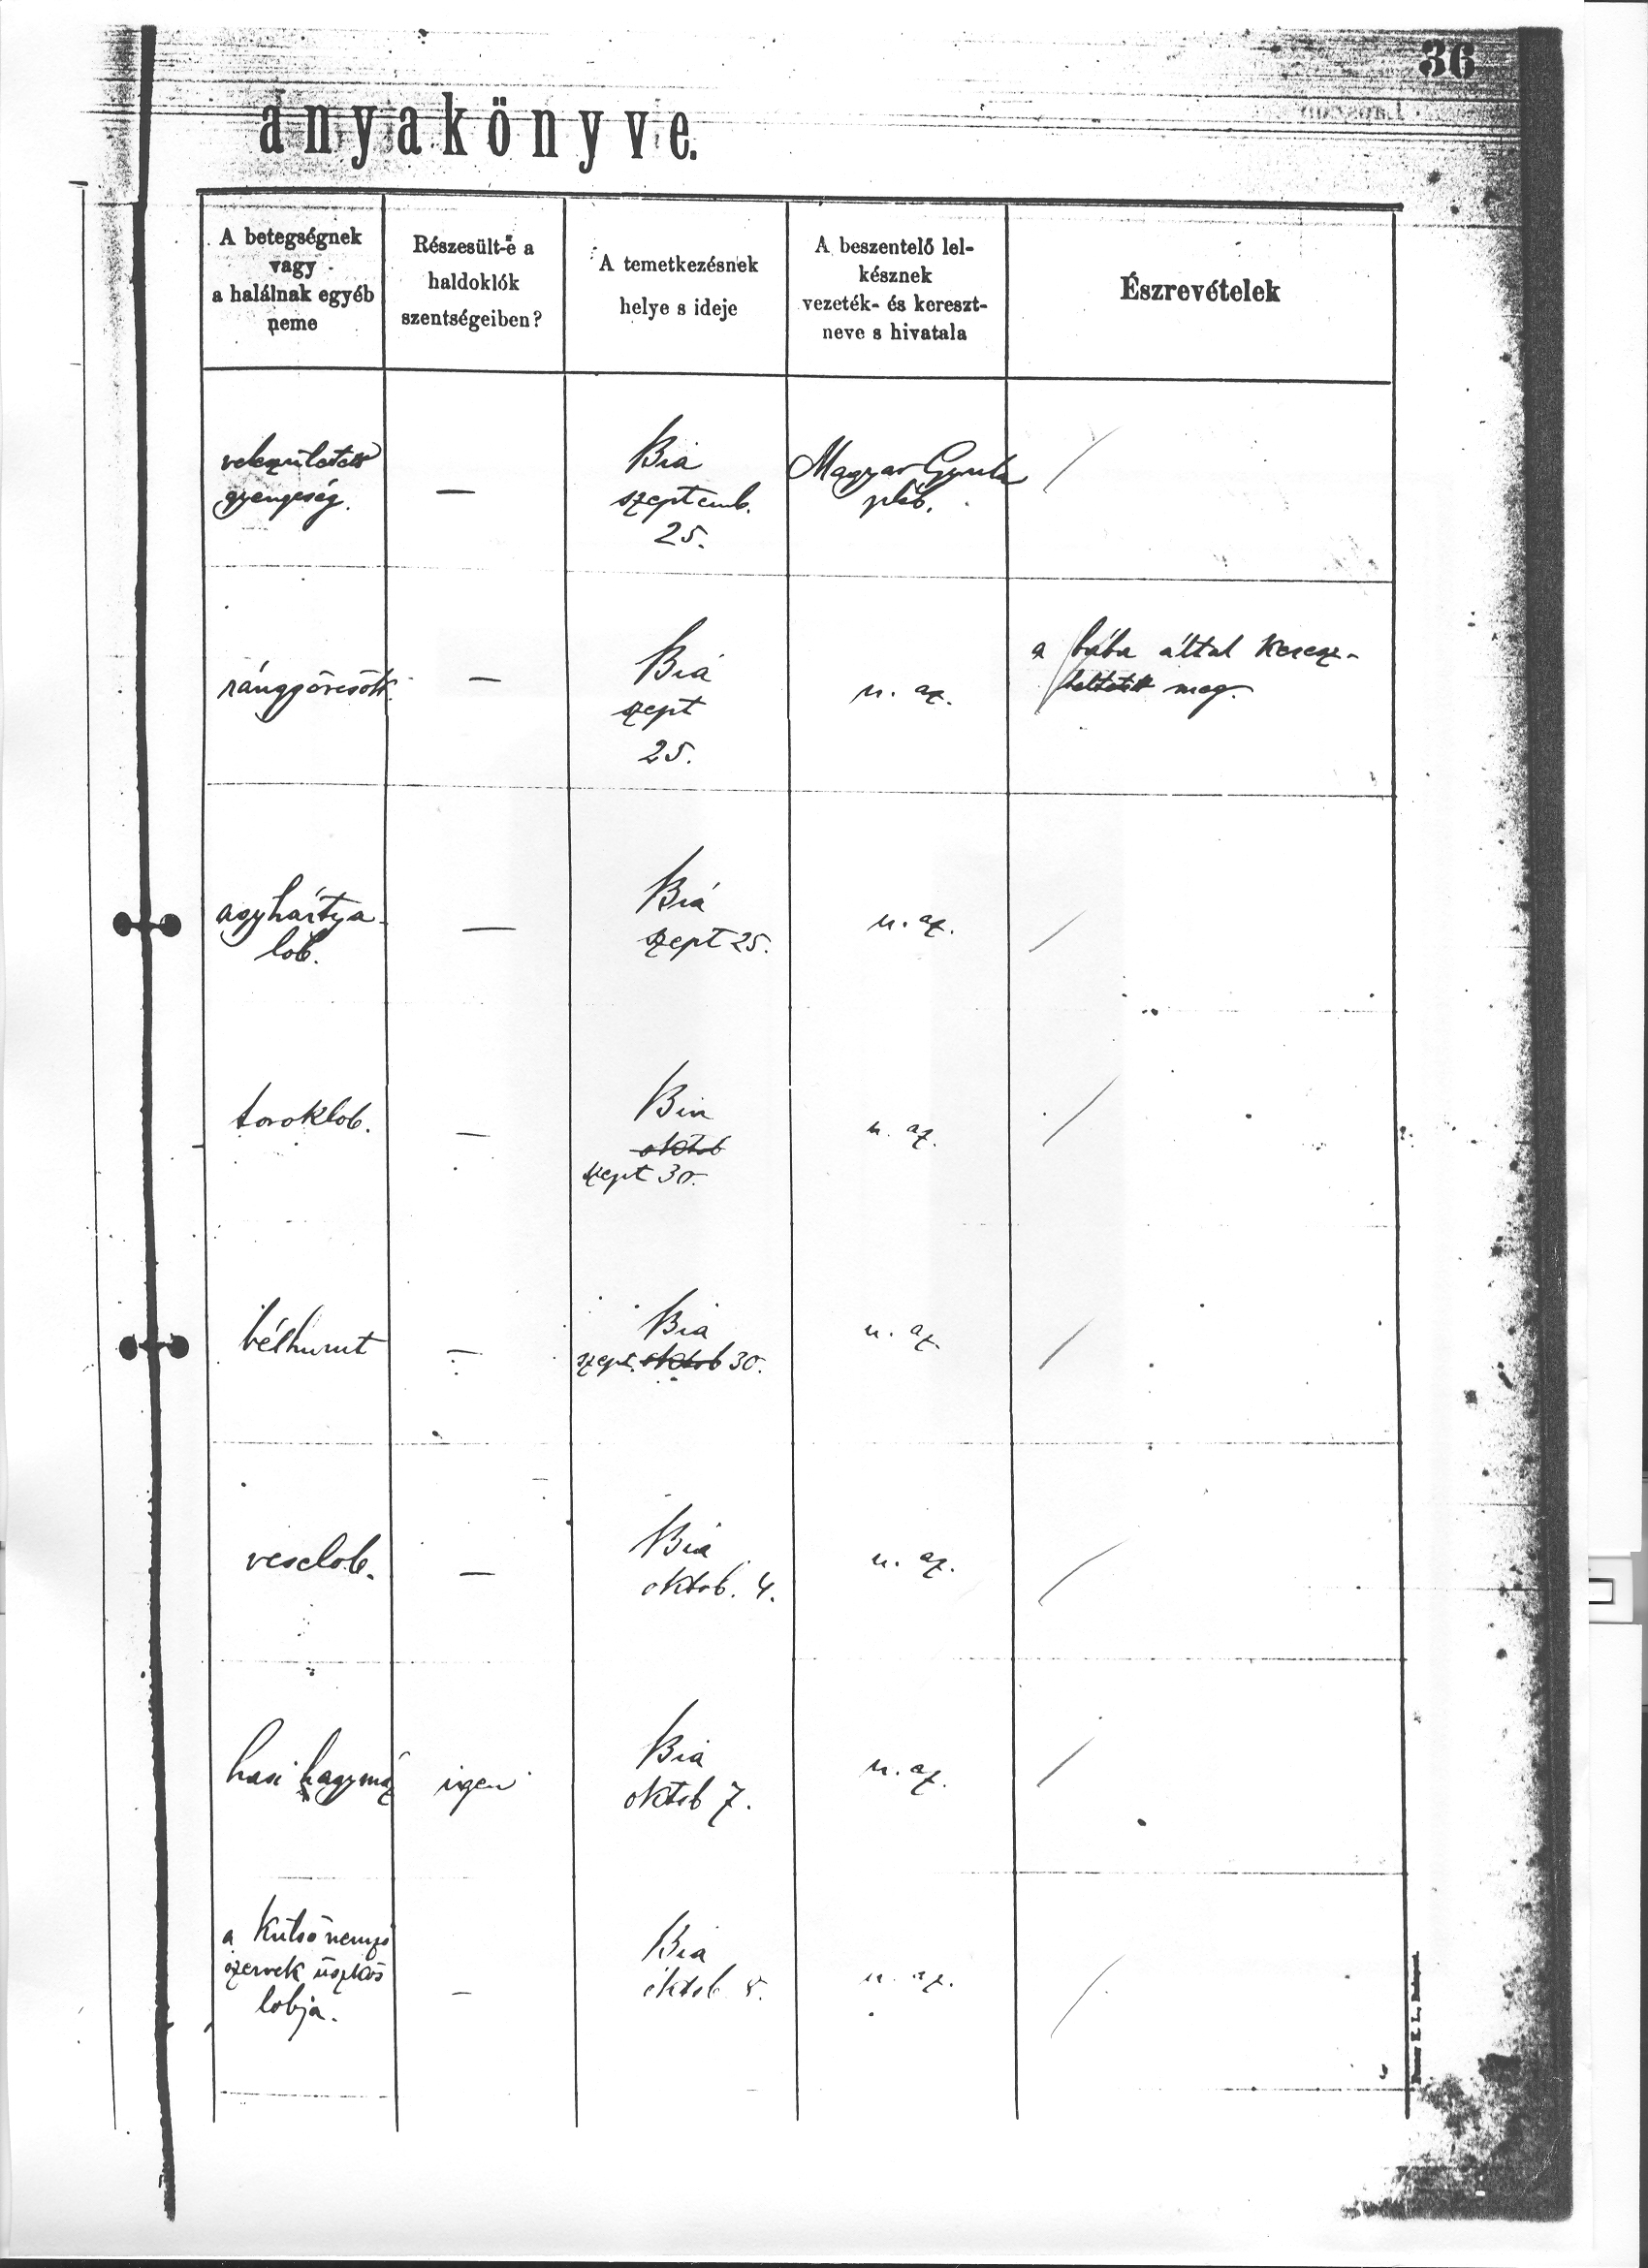 36
anyakönyve.
A betegségnek
vagy
a halálnak egyéb
neme
Részesült-e a
haldoklók
szentségeiben?
A temetkezésnek
helye s ideje
A beszentelő lel-
késznek
vezeték- és kereszt-
neve s hivatala
Észrevételek
veleszületett
gyengeség.
—
Bia
septemb.
25.
Magyar Gyula
pléb.
/
ránggörcsök.
—
Bia
szept
25.
u. az.
a bába által keresz-
teltetett meg.
agyhártya-
lob.
—
Bia
szept 25.
u. az.
/
toroklob.
—
Bia
oktob
szept 30.
u. az.
/
bélhurut
—
Bia
szept. oktob 30.
u. az.
/
veselob.
—
Bia
oktob. 4.
u. az.
/
hasi hagymáz
igen
Bia
oktob 7.
u. az.
/
a külső nemző
szervek üszkös
lobja.
—
Bia
oktob. 8.
u. az.
/